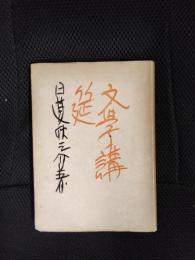 文學講
筵
日夏耿之介著